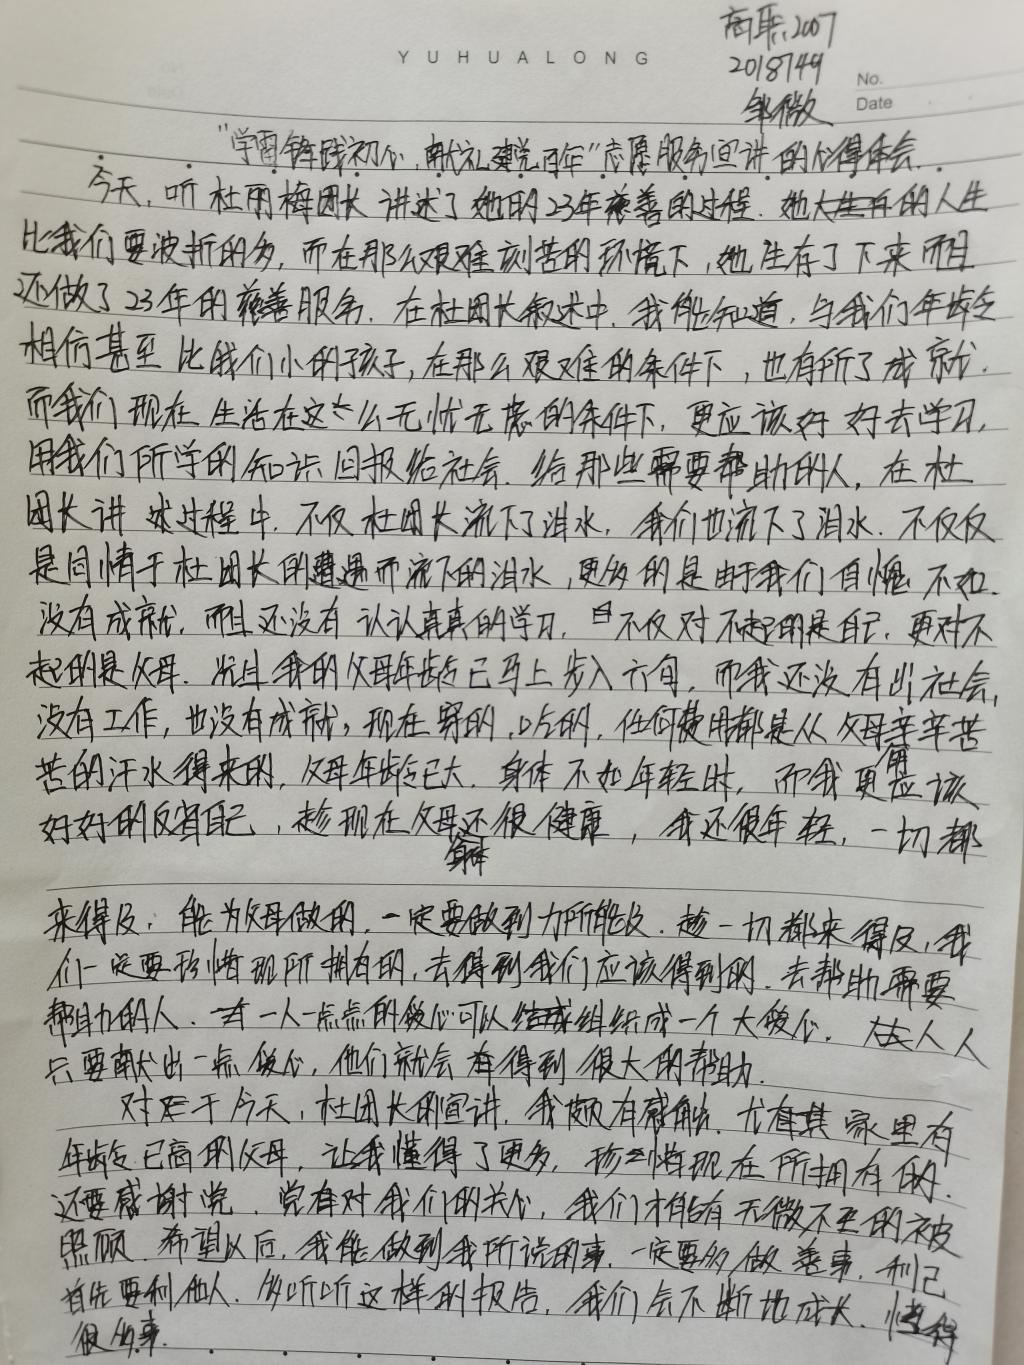 YUHUALONG
商职2007
2018749
No.
Date
邹微
"学雷锋践初心,献礼建党百年"志愿服务宣讲的心得体会.
今天,听杜丽梅团长讲述了她的23年慈善的过程.她的人生
比我们要波折的多,而在那么艰难刻苦的环境下,她生存了下来而且
还做了23年的慈善服务.在杜团长叙述中,我能知道,与我们年龄
相仿甚至比我们小的孩子,在那么艰难的条件下,也有所了成就.
而我们现在生活在这么无忧无虑的条件下,更应该好好去学习,
用我们所学的知识回报给社会.给那些需要帮助的人,在杜
团长讲述过程中.不仅杜团长流下了泪水,我们也流下了泪水.不仅仅
是同情于杜团长的遭遇而流下的泪水,更多的是由于我们自愧不如.
没有成就,而且还没有认认真真的学习,不仅对不起的是自己,更对不
起的是父母.况且我的父母年龄已马上步入六旬,而我还没有出社会,
没有工作,也没有成就,现在穿的,吃的,任何费用都是从父母辛辛苦
苦的汗水得来的,父母年龄已大,身体不如年轻时,而我更应该
好好的反省自己,趁现在父母身体还很健康,我还很年轻,一切都
来得及,能为父母做的,一定要做到力所能及.趁一切都来得及,我
们一定要珍惜现所拥有的,去得到我们应该得到的.去帮助需要
帮助的人.一人一点点的爱心可以组织成一个大爱心.人人
只要献出一点爱心,他们就会得到很大的帮助.
对于今天,杜团长的宣讲.我颇有感触.尤其家里有
年龄已高的父母,让我懂得了更多,珍惜现在所拥有的.
还要感谢党.党有对我们的关心,我们才能有无微不至的被
照顾.希望以后,我能做到我所说的事.一定要多做善事,利己
首先要利他人.多听听这样的报告,我们会不断地成长.懂得
很多事.